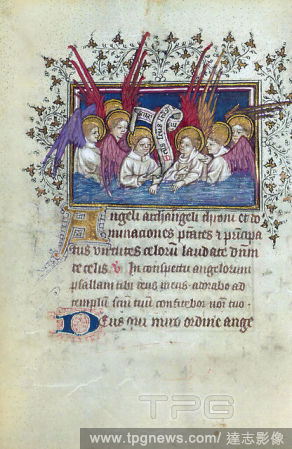 Angeli archangeli throni et do
minaciones ptates & pricipa
tus virtutes celorum laudate dnm
de celis. V In conspectu angelorum
psallam tibi deus meus. adorabo ad
templum scm tuum confitebor noi tuo.
Deus qui miro ordine ange
TPG
www.tpgnews.com / 達志影像